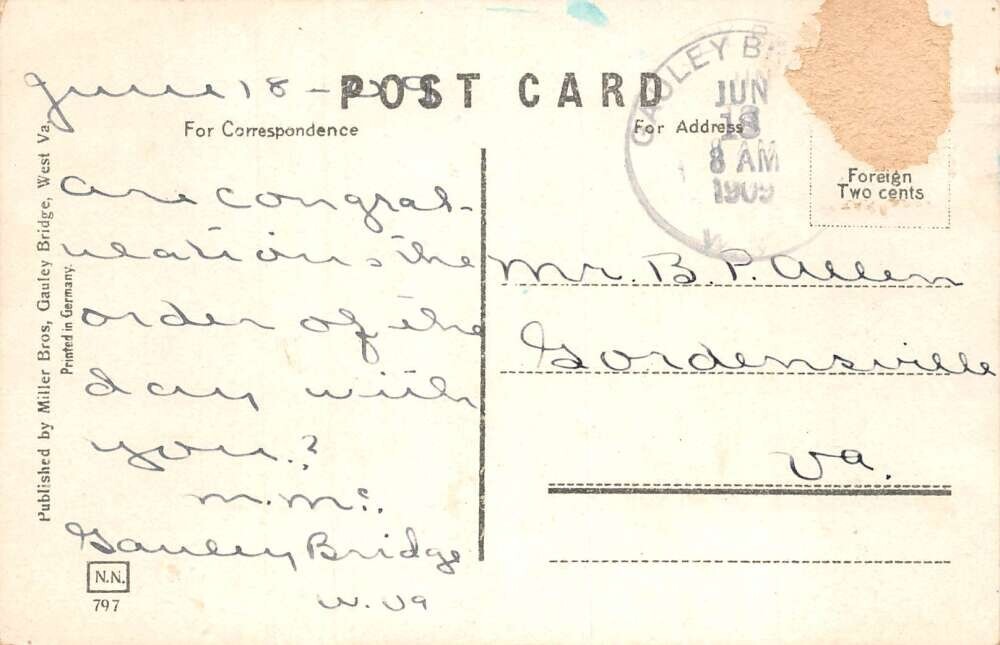 POST CARD
June 18 - 09
For Correspondence
For Address
GAULEY B
JUN
18
8 AM
1909
W. V
Foreign
Two cents
are congrat-
ulations the
order of the
day with
you.?
M. Mc.
Gauley Bridge
W. Va
Mr. B. P. Allen
Gordensville
Va.
Published by Miller Bros, Gauley Bridge, West Va.
Printed in Germany.
N.N.
797